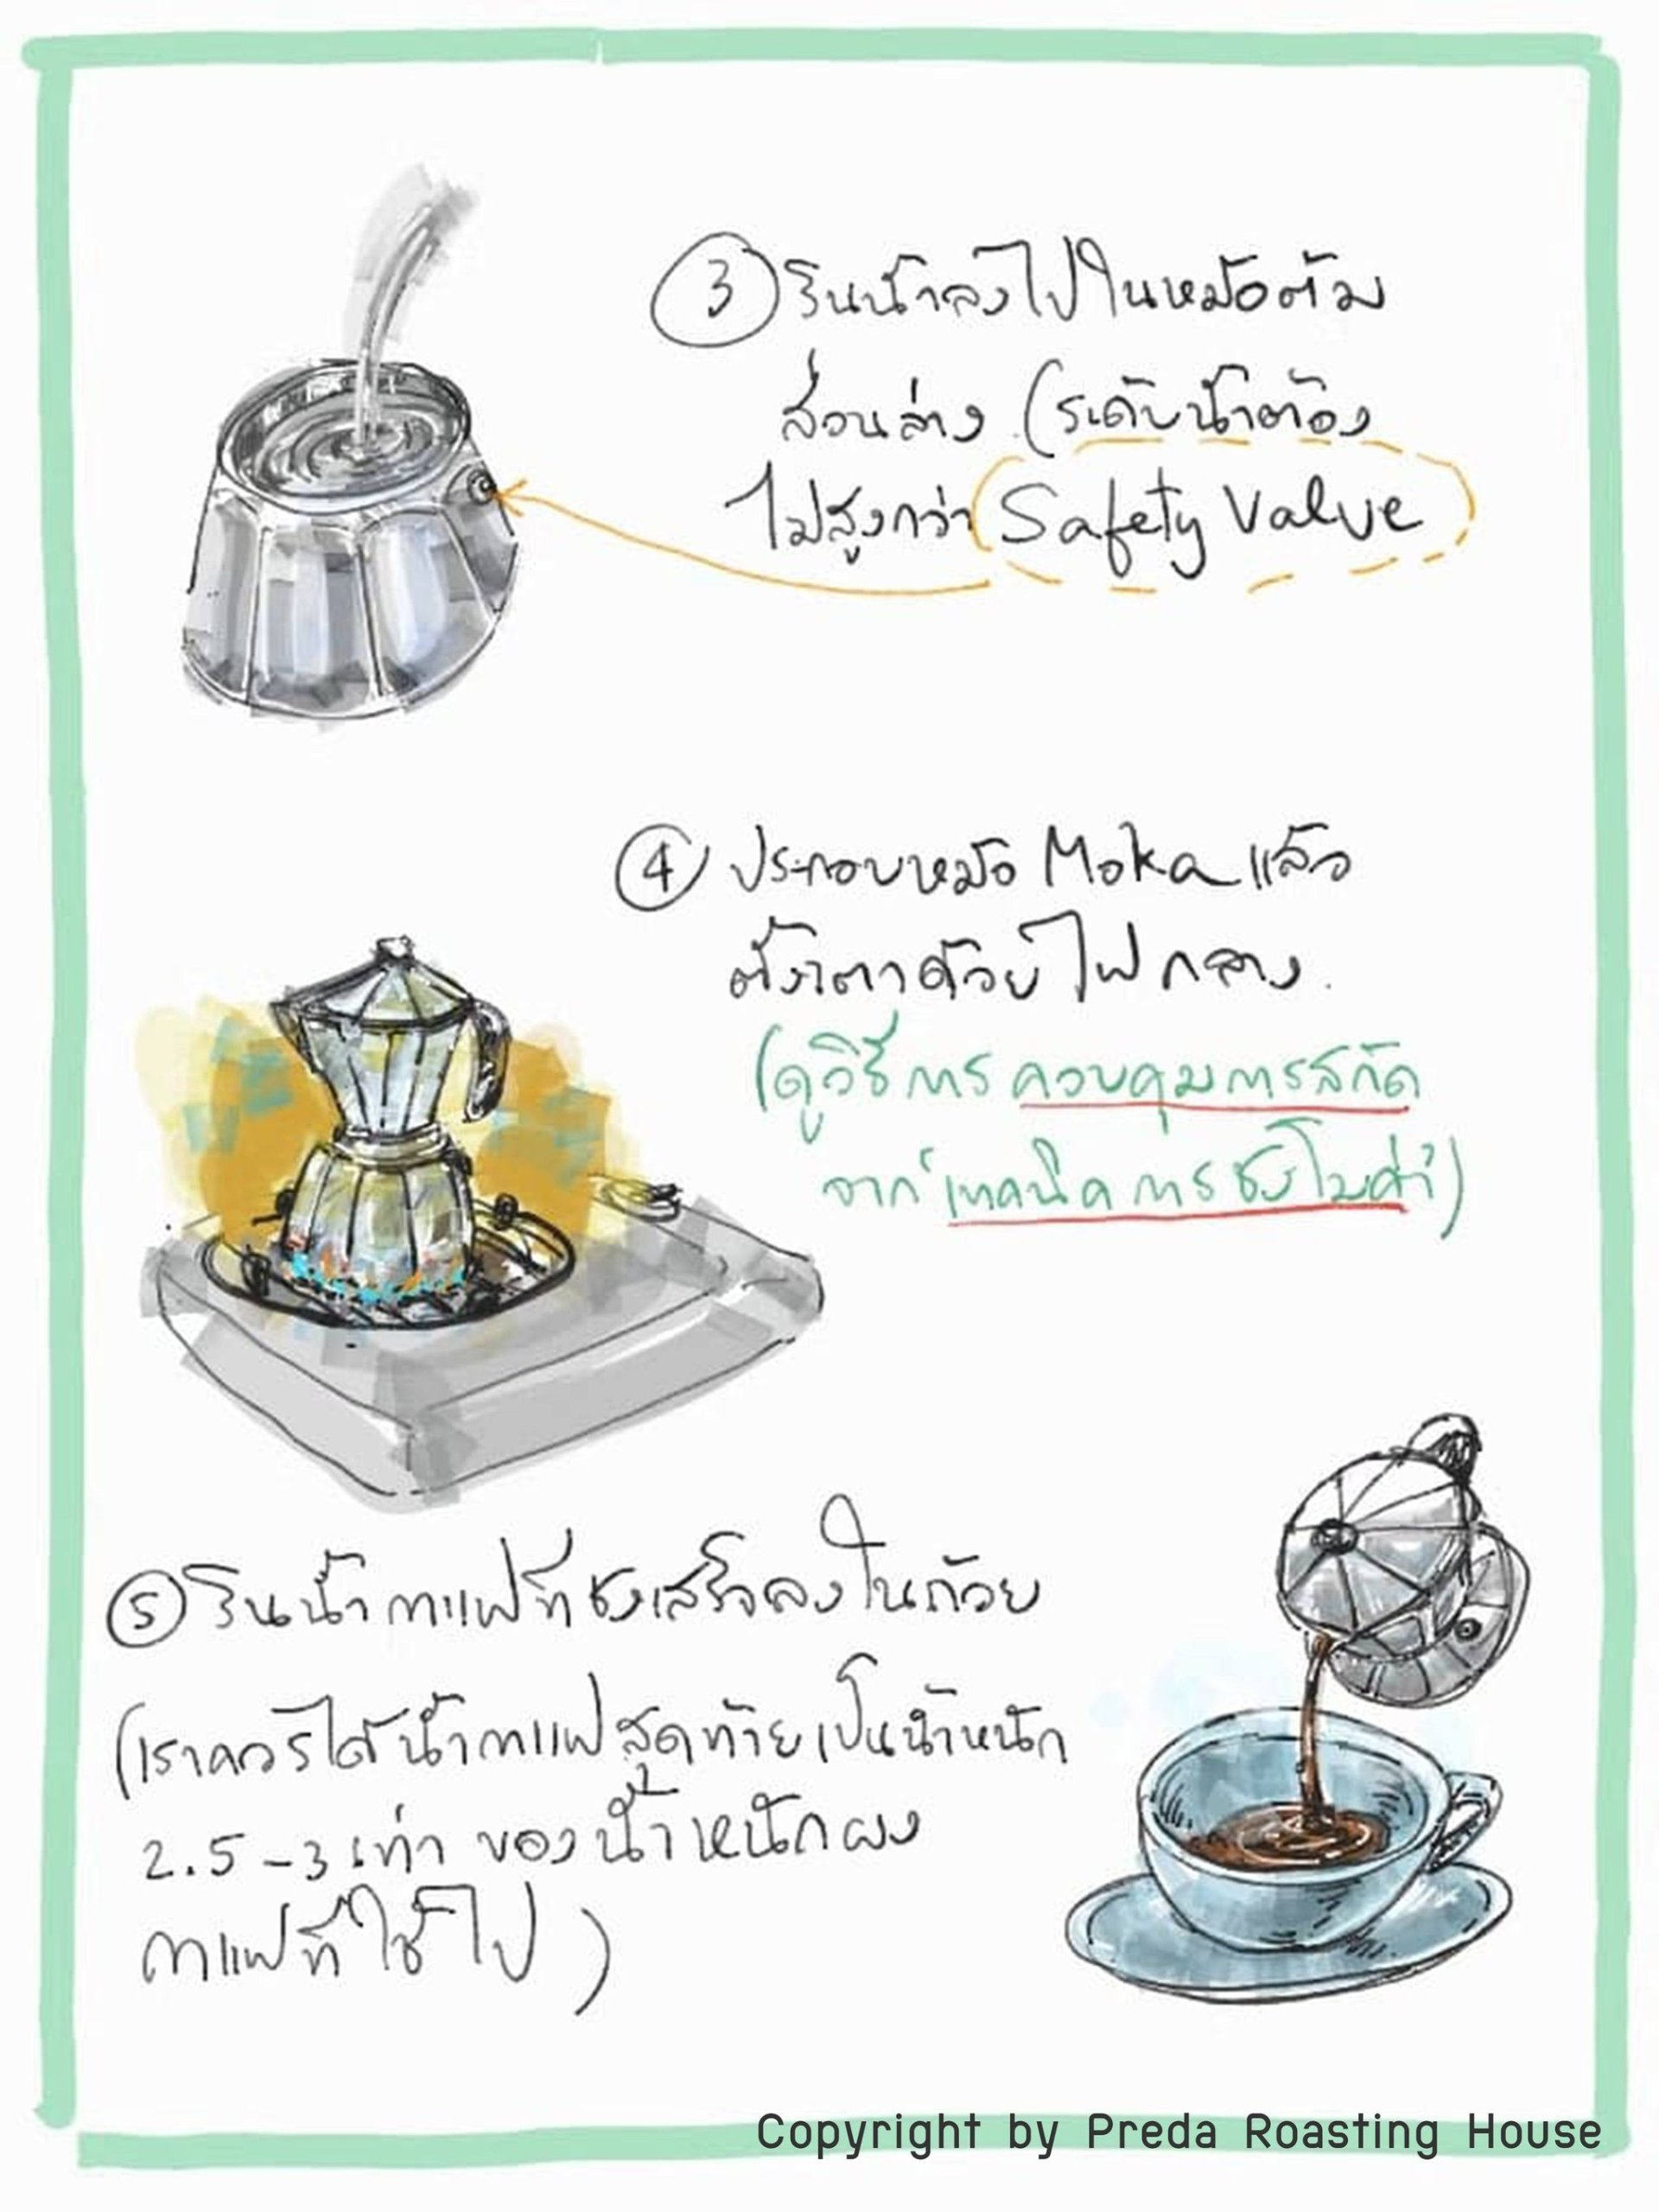 ③ รินน้ำลงไปในหม้อต้ม
ส่วนล่าง (ระดับน้ำต้อง
ไม่สูงกว่า Safety Valve
④ ประกอบหม้อ Moka แล้ว
ตั้งเตาด้วยไฟกลาง.
(ดูวิธีการควบคุมการสกัด
จากเทคนิคการชงโมค่า)
⑤ รินน้ำกาแฟที่ชงเสร็จลงในถ้วย
(เราควรได้น้ำกาแฟสุดท้ายเป็นน้ำหนัก
2.5 - 3 เท่า ของน้ำหนักผง
กาแฟที่ใช้ไป)
Copyright by Preda Roasting House